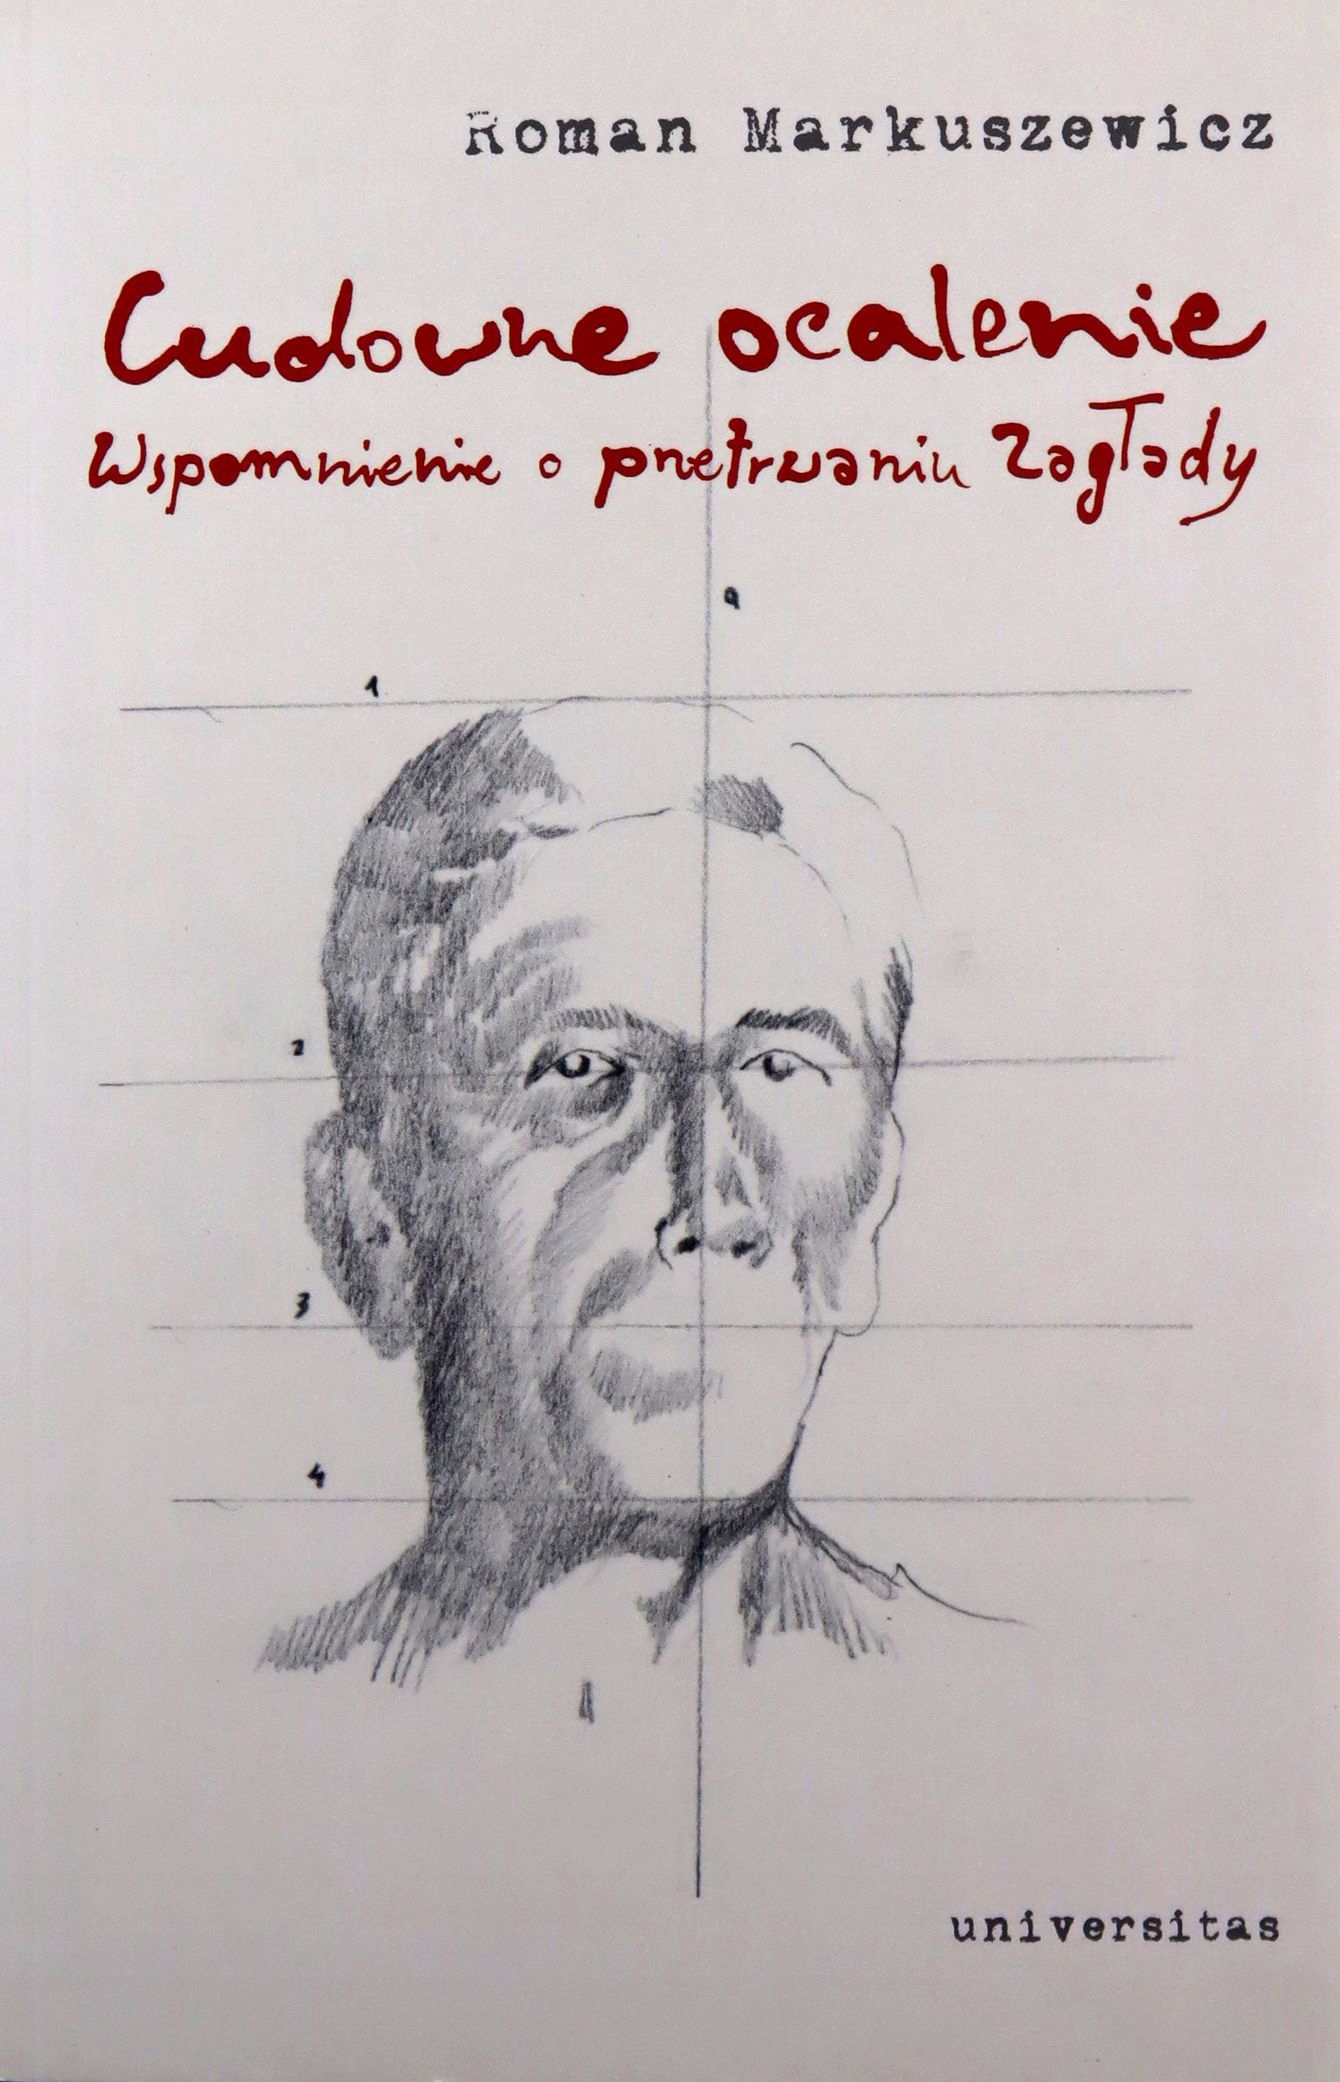 Roman Markuszewicz
Cudowne ocalenie
Wspomnienie o przetrwaniu Zagłady
a
1
2
3
4
universitas